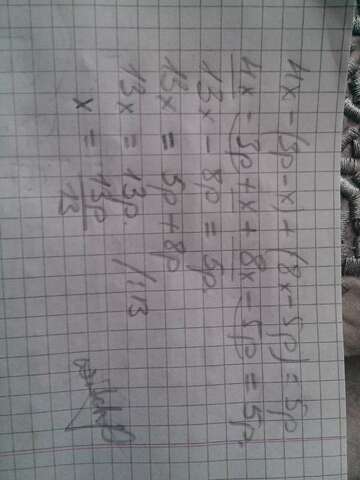 4x - (3p - x) + (8x - 5p) = 5p
4x - 3p + x + 8x - 5p = 5p
13x - 8p = 5p
13x = 5p + 8p
13x = 13p /:13
x = 13p/13